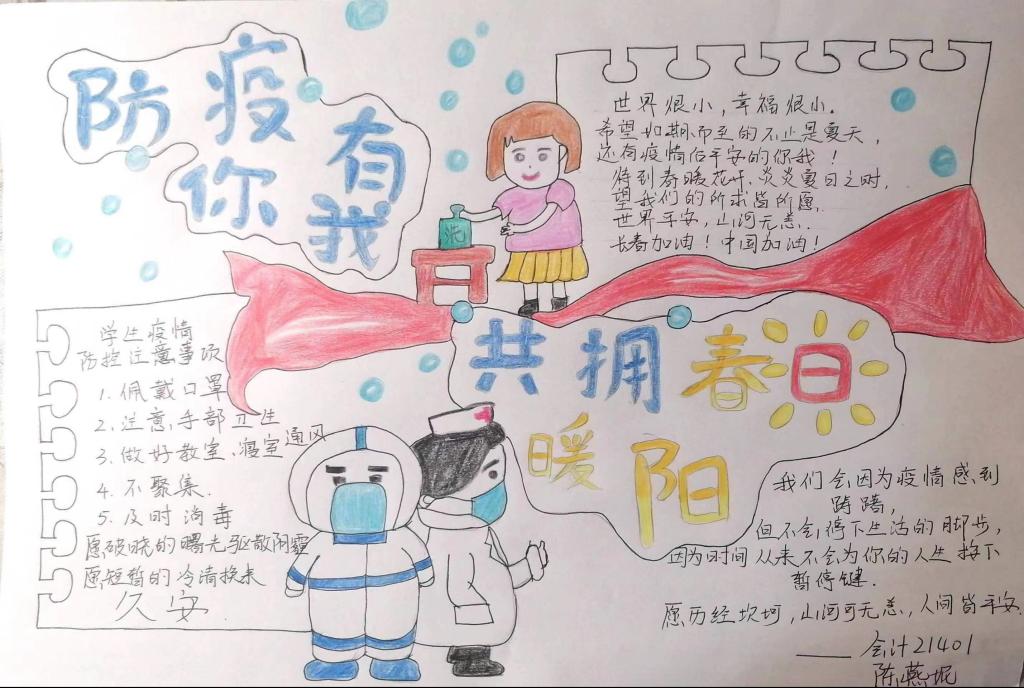 防疫
你有
我
世界很小，幸福很小.
希望如期而至的不止是夏天，
还有疫情后平安的你我！
待到春暖花开.炎炎夏日之时，
望我们的所求皆所愿.
世界平安，山河无恙.
长春加油！中国加油！
洗
学生疫情
防控注意事项
1.佩戴口罩
2.注意手部卫生
3.做好教室、寝室通风
4.不聚集.
5.及时消毒
愿破晓的曙光驱散阴霾
愿短暂的冷清换来
久安
共拥春日
暖阳
我们会因为疫情感到
踌躇，
但不会停下生活的脚步，
因为时间从来不会为你的人生按下
暂停键.
愿历经坎坷，山河可无恙，人间皆平安.
——会计21401
陈燕妮